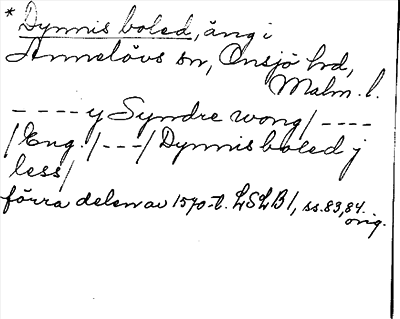 * Dynnis boled, äng i
Annelövs sn, Onsjö hd,
Malm. l.
- - - - y Syndre wong/ - - - -
/Eng./ - - -/ Dynnis boled j
less/
förra delen av 1570-t. LSLB 1, ss. 83, 84.
orig.